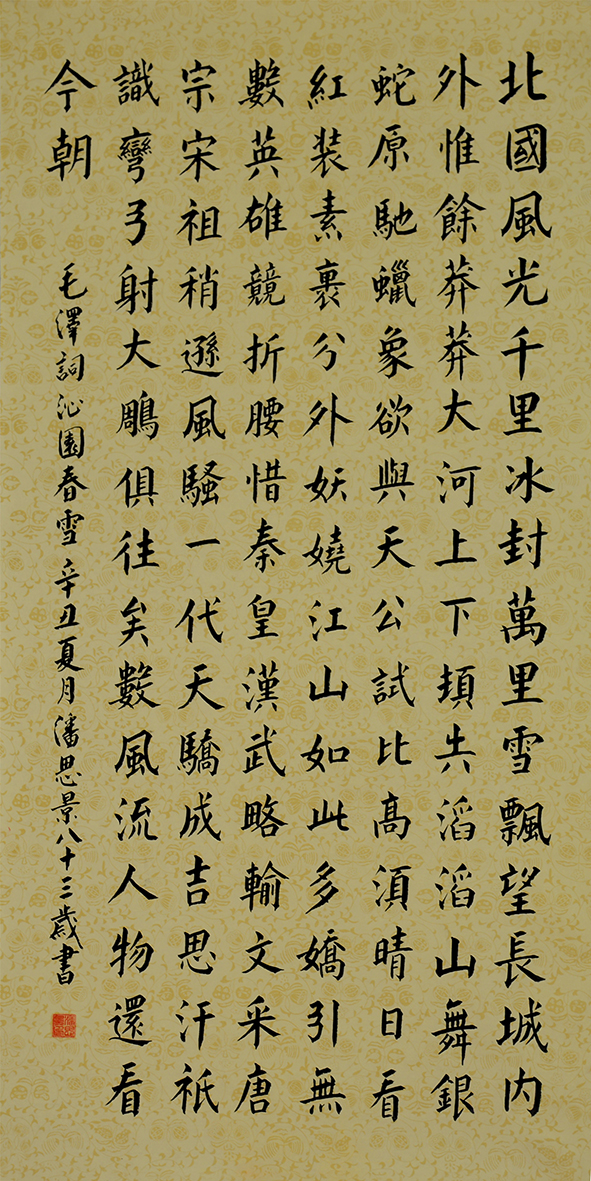 北國風光千里冰封萬里雪飄望長城内
外惟餘莽莽大河上下頓失滔滔山舞銀
蛇原馳蠟象欲與天公試比高須晴日看
紅装素裹分外妖嬈江山如此多嬌引無
數英雄競折腰惜秦皇漢武略輸文采唐
宗宋祖稍遜風騷一代天驕成吉思汗祇
識彎弓射大鵰俱往矣數風流人物還看
今朝
毛澤詞沁園春雪辛丑夏月潘思景八十三歲書